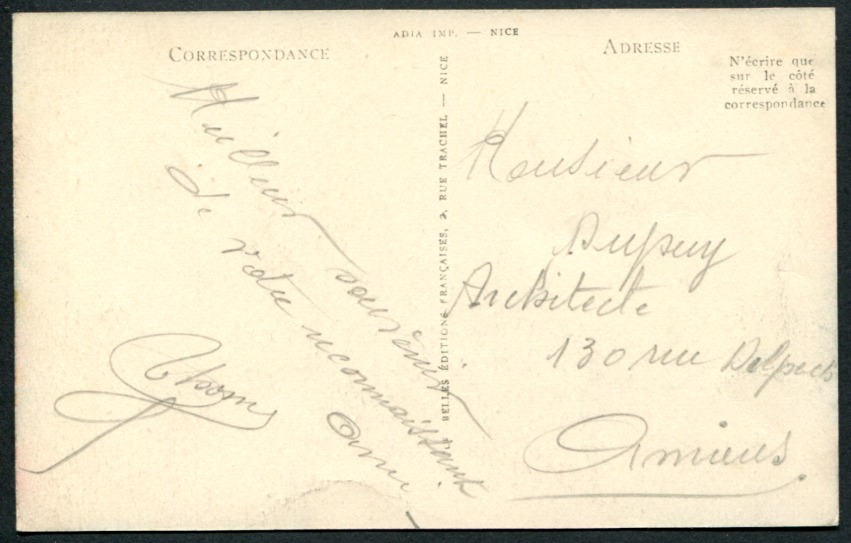 ADIA IMP. — NICE
CORRESPONDANCE
Meilleur souvenir
de votre reconnaissant
ami
LES BELLES ÉDITIONS FRANÇAISES, 2, RUE TRACHEL — NICE
ADRESSE
N'écrire que
sur le côté
réservé à la
correspondance
Monsieur
Dupuy
Architecte
130 rue Delpech
Amiens